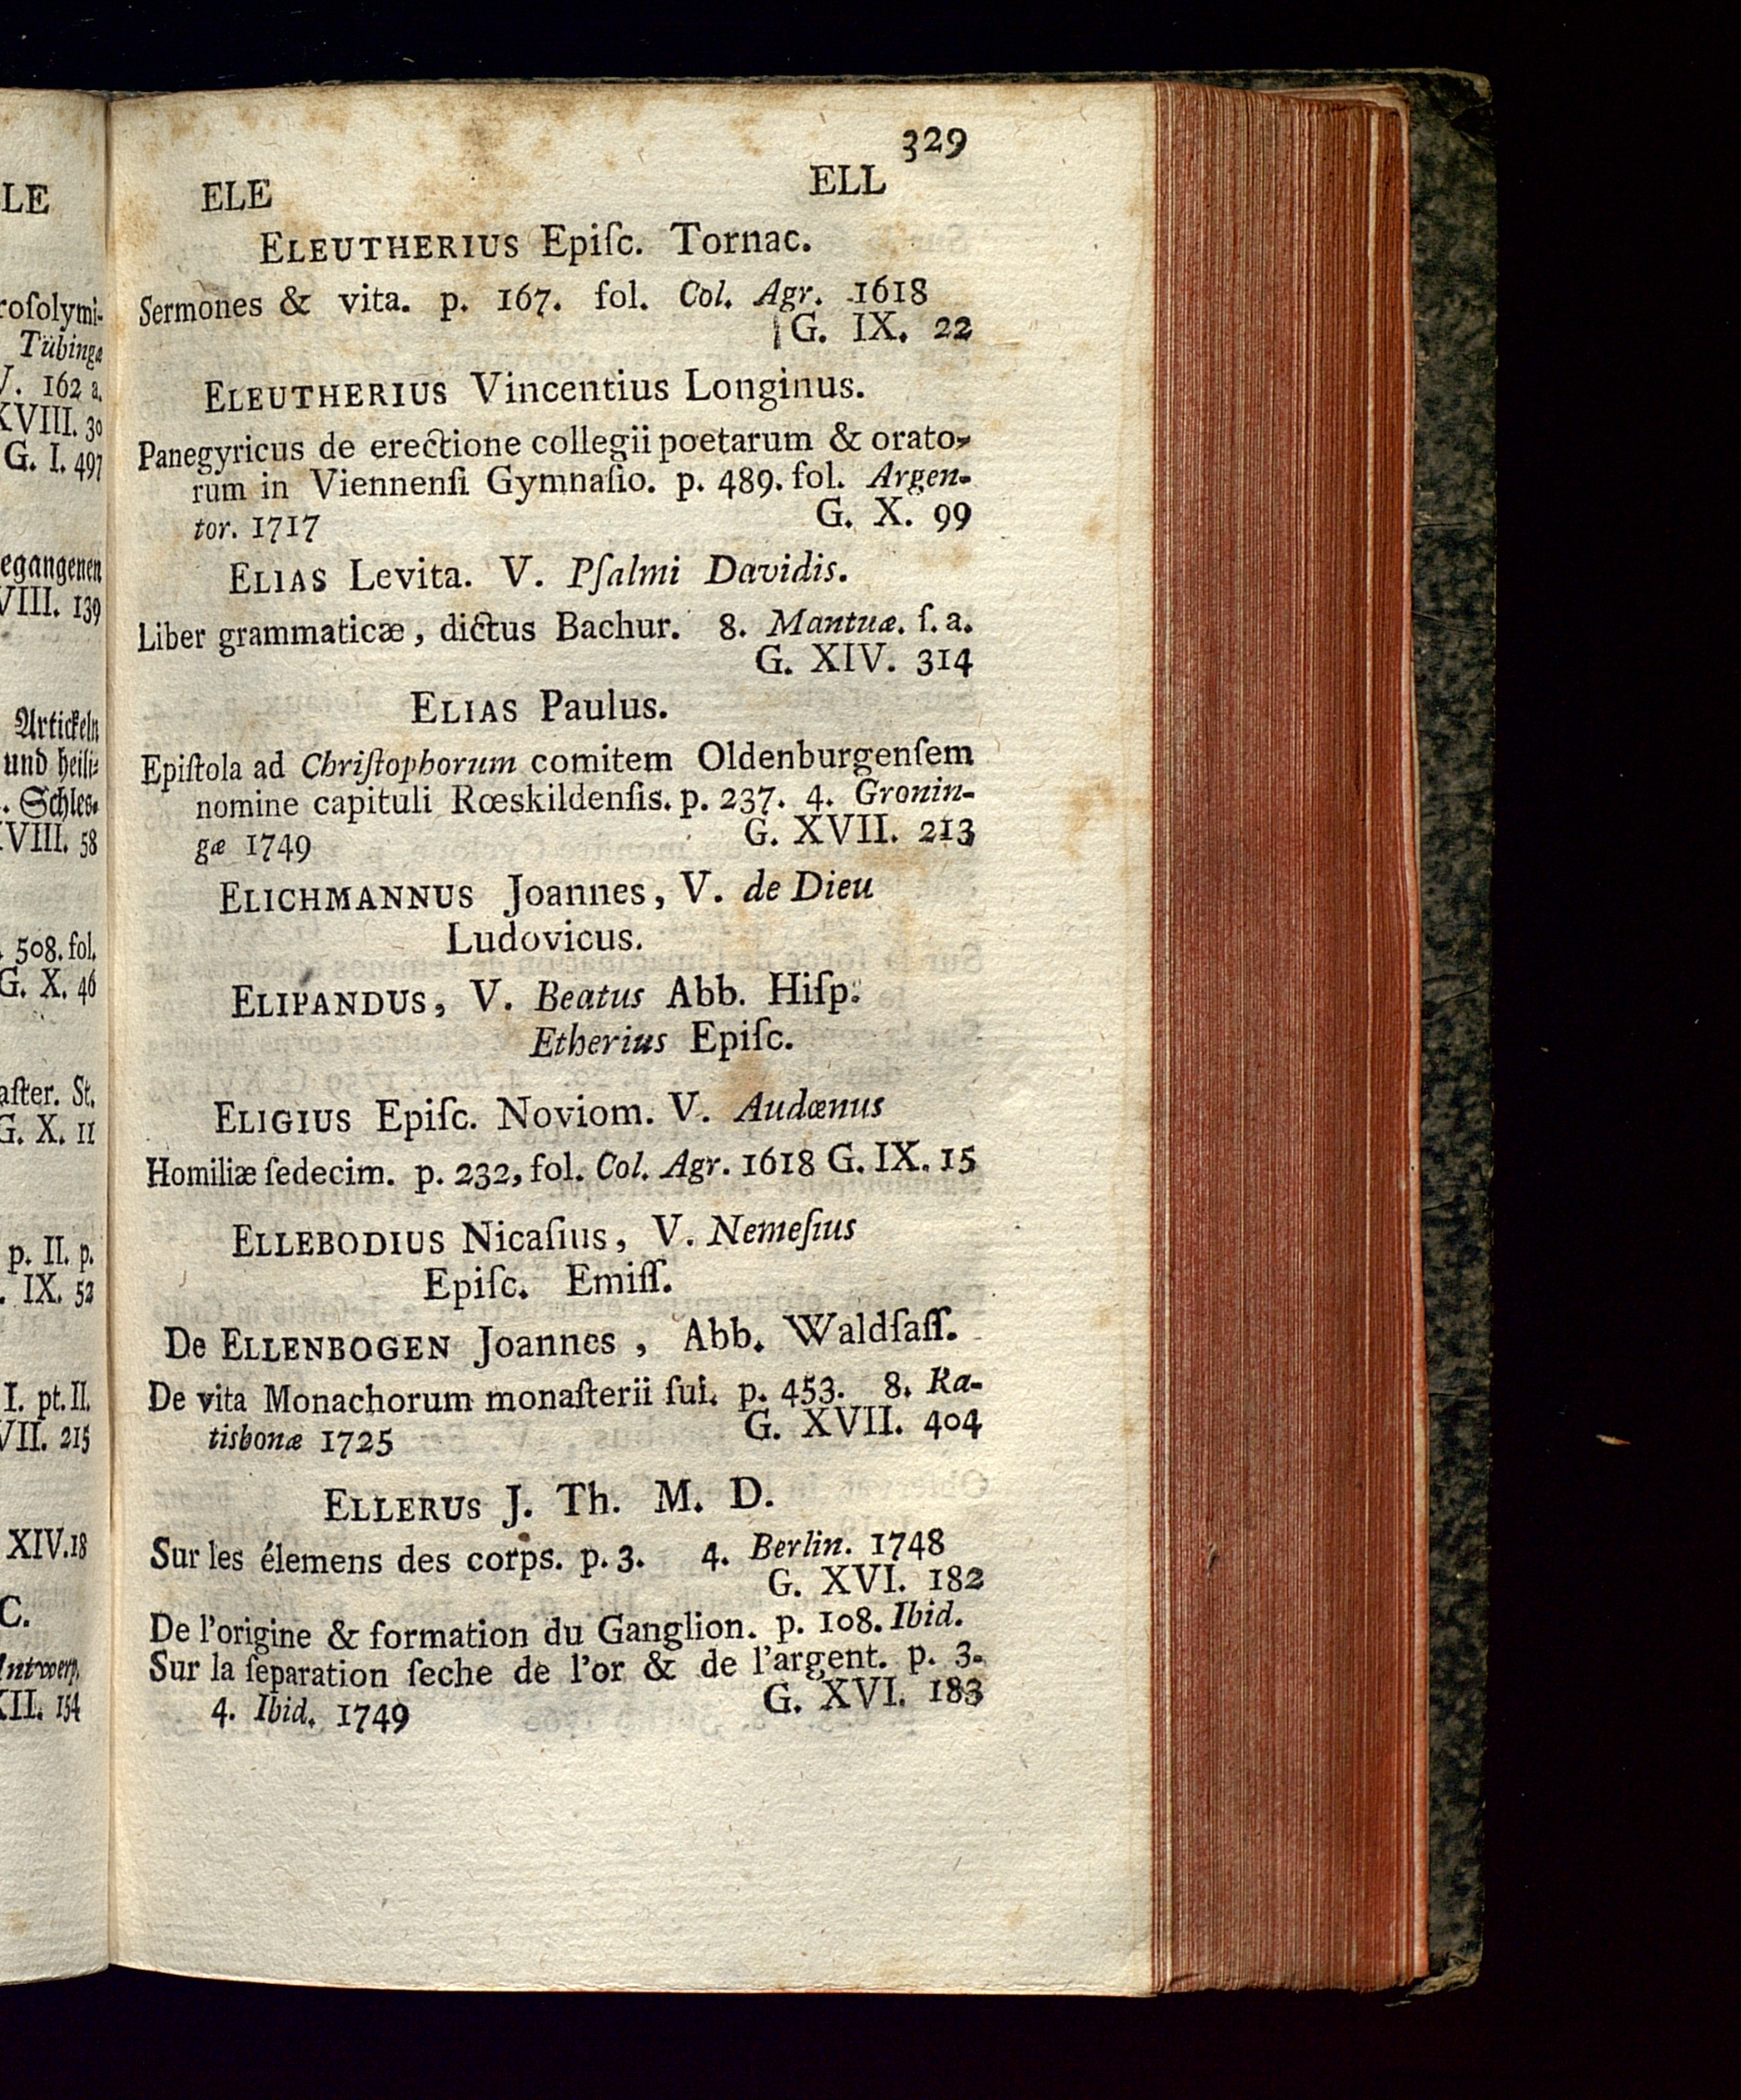 329
ELE ELL
ELEUTHERIUS Epiſc. Tornac.
Sermones & vita. p. 167. fol. Col. Agr. 1618
G. IX. 22
ELEUTHERIUS Vincentius Longinus.
Panegyricus de erectione collegii poetarum & orato-
rum in Viennenſi Gymnaſio. p. 489. fol. Argen-
tor. 1717 G. X. 99
ELIAS Levita. V. Pſalmi Davidis.
Liber grammaticæ, dictus Bachur. 8. Mantuæ. ſ. a.
G. XIV. 314
ELIAS Paulus.
Epiſtola ad Chriſtophorum comitem Oldenburgenſem
nomine capituli Rœskildenſis. p. 237. 4. Gronin-
gæ 1749 G. XVII. 213
ELICHMANNUS Joannes, V. de Dieu
Ludovicus.
ELIPANDUS, V. Beatus Abb. Hiſp.
Etherius Epiſc.
ELIGIUS Epiſc. Noviom. V. Audœnus
Homiliæ ſedecim. p. 232, fol. Col. Agr. 1618 G. IX. 15
ELLEBODIUS Nicaſius, V. Nemeſius
Epiſc. Emiſſ.
De ELLENBOGEN Joannes, Abb. Waldſaſſ.
De vita Monachorum monaſterii ſui. p. 453. 8. Ra-
tisbonæ 1725 G. XVII. 404
ELLERUS J. Th. M. D.
Sur les élemens des corps. p. 3. 4. Berlin. 1748
G. XVI. 182
De l'origine & formation du Ganglion. p. 108. Ibid.
Sur la ſeparation ſeche de l'or & de l'argent. p. 3.
4. Ibid. 1749 G. XVI. 183
LE
roſolymi-
Tübingæ
V. 162 a.
XVIII. 30
G. I. 497
egangenen
VIII. 139
Artickeln
und heili-
. Schles-
XVIII. 58
. 508. fol.
G. X. 46
aſter. St.
G. X. 11
p. II. p.
. IX. 52
I. pt. II.
VII. 215
XIV. 18
C.
Antwerp.
XII. 154